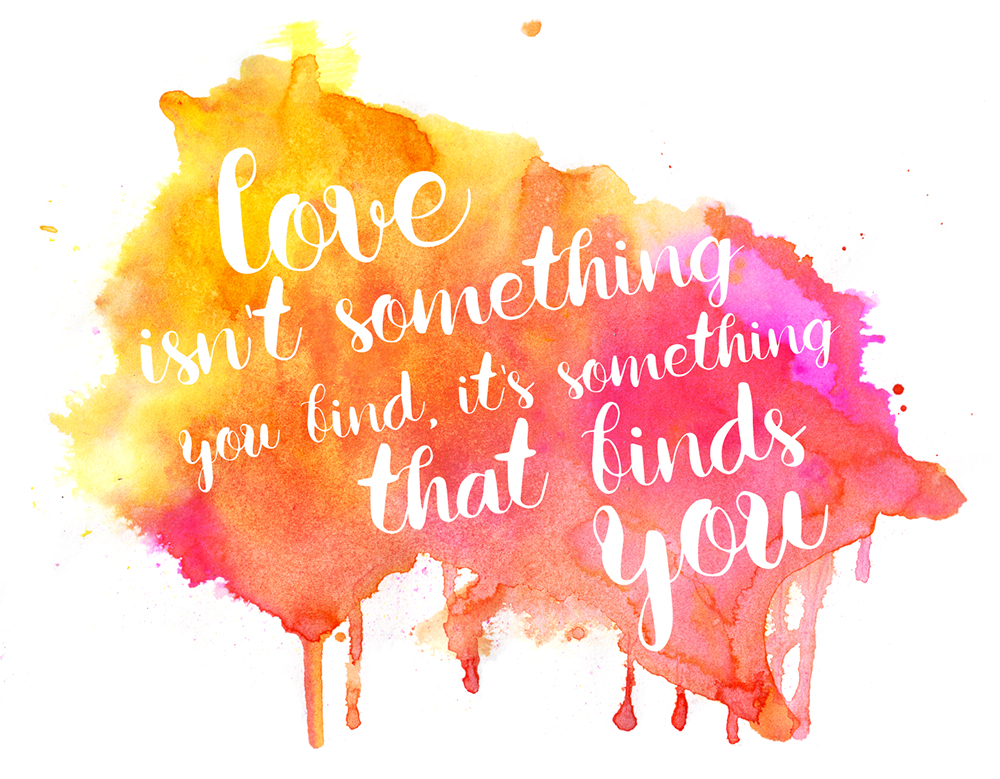 love
isn't something
you find, it's something
that finds
you